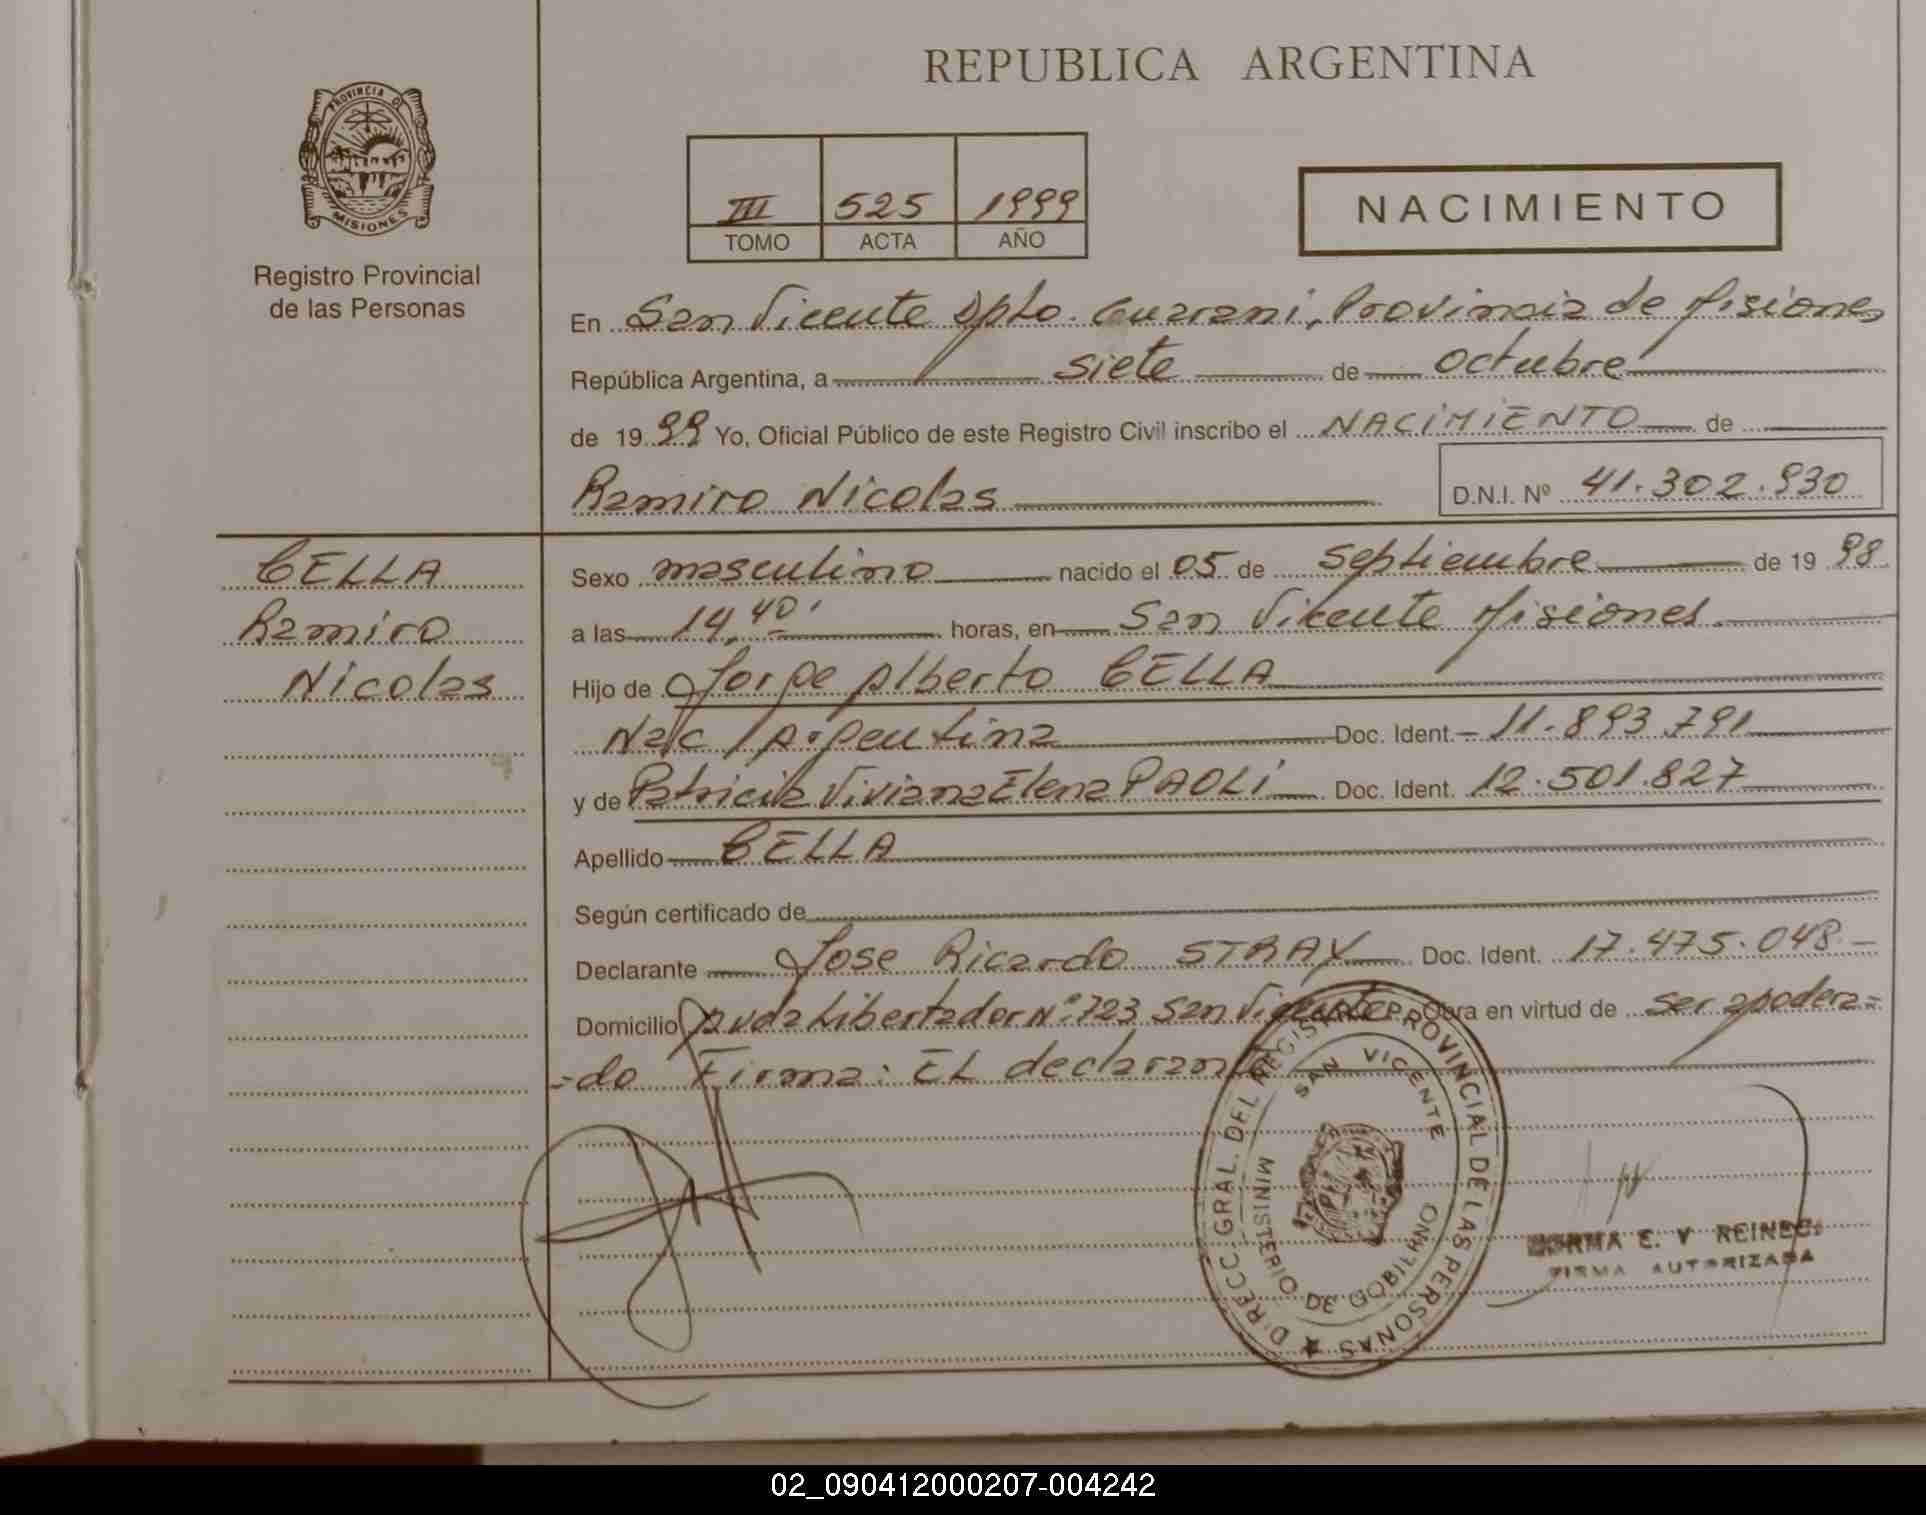 REPUBLICA ARGENTINA
PROVINCIA DE
MISIONES
Registro Provincial
de las Personas
III 525 1999
TOMO ACTA AÑO
NACIMIENTO
En San Vicente Dpto. Guarani, Provincia de Misiones
República Argentina, a siete de octubre
de 1999 Yo, Oficial Público de este Registro Civil inscribo el NACIMIENTO de
Ramiro Nicolas D.N.I. Nº 41.302.930
CELLA
Ramiro
Nicolas
Sexo masculino nacido el 05 de Septiembre de 1998
a las 14,40' horas, en San Vicente Misiones.
Hijo de Jorge Alberto CELLA
Nac Argentina Doc. Ident. 11.893.791
y de Patricia Viviana Elena PAOLI Doc. Ident. 12.501.827
Apellido CELLA
Según certificado de
Declarante Jose Ricardo STRAY Doc. Ident. 17.475.048.-
Domicilio Avda Libertador Nº 723 San Vicente Obra en virtud de ser apodera=
=do Firma: EL declarante
DIRECC. GRAL. DEL REGISTRO PROVINCIAL DE LAS PERSONAS
SAN VICENTE
MINISTERIO DE GOBIERNO
NORMA E. V REINEC
FIRMA AUTORIZADA
02_090412000207-004242